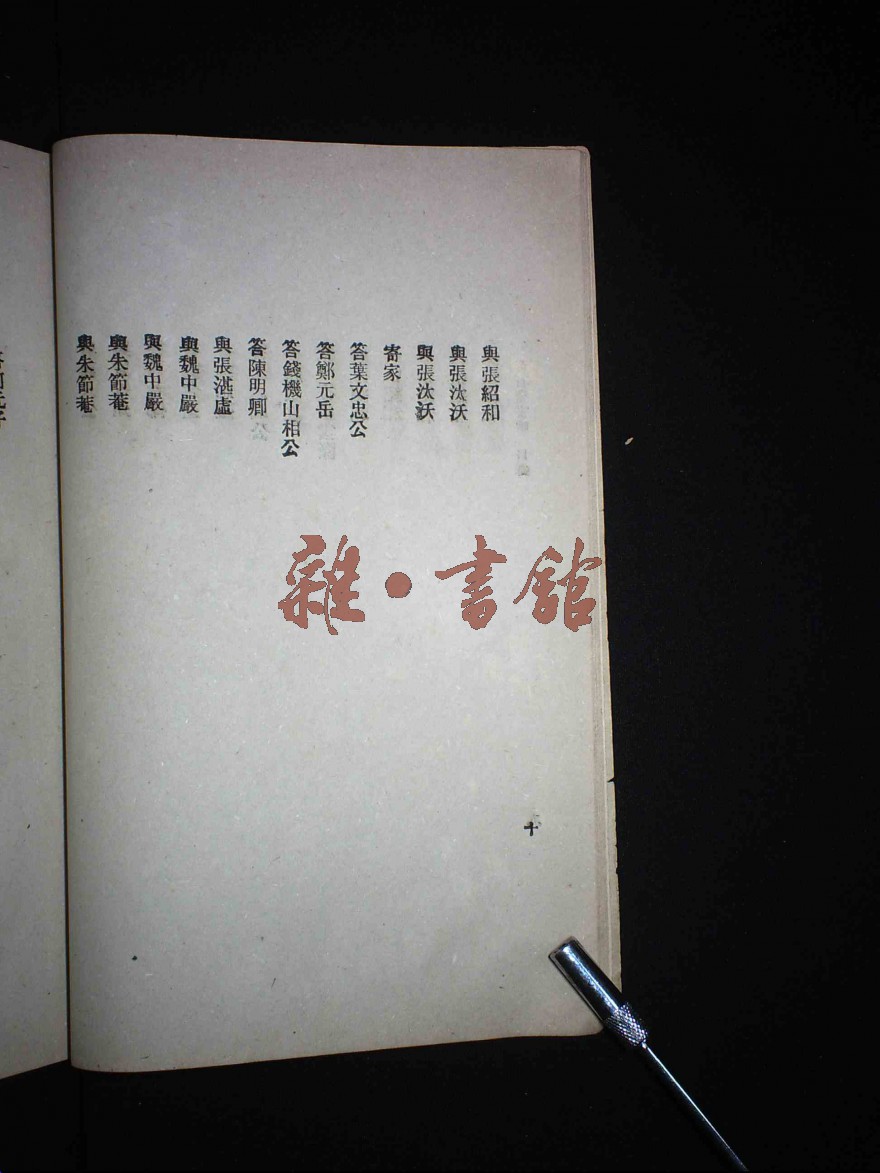 與張紹和
與張汰沃
與張汰沃
寄家
答葉文忠公
答鄭元岳
答錢機山相公
答陳明卿
與張湛虛
與魏中嚴
與魏中嚴
與朱節菴
與朱節菴
十
雜·書館